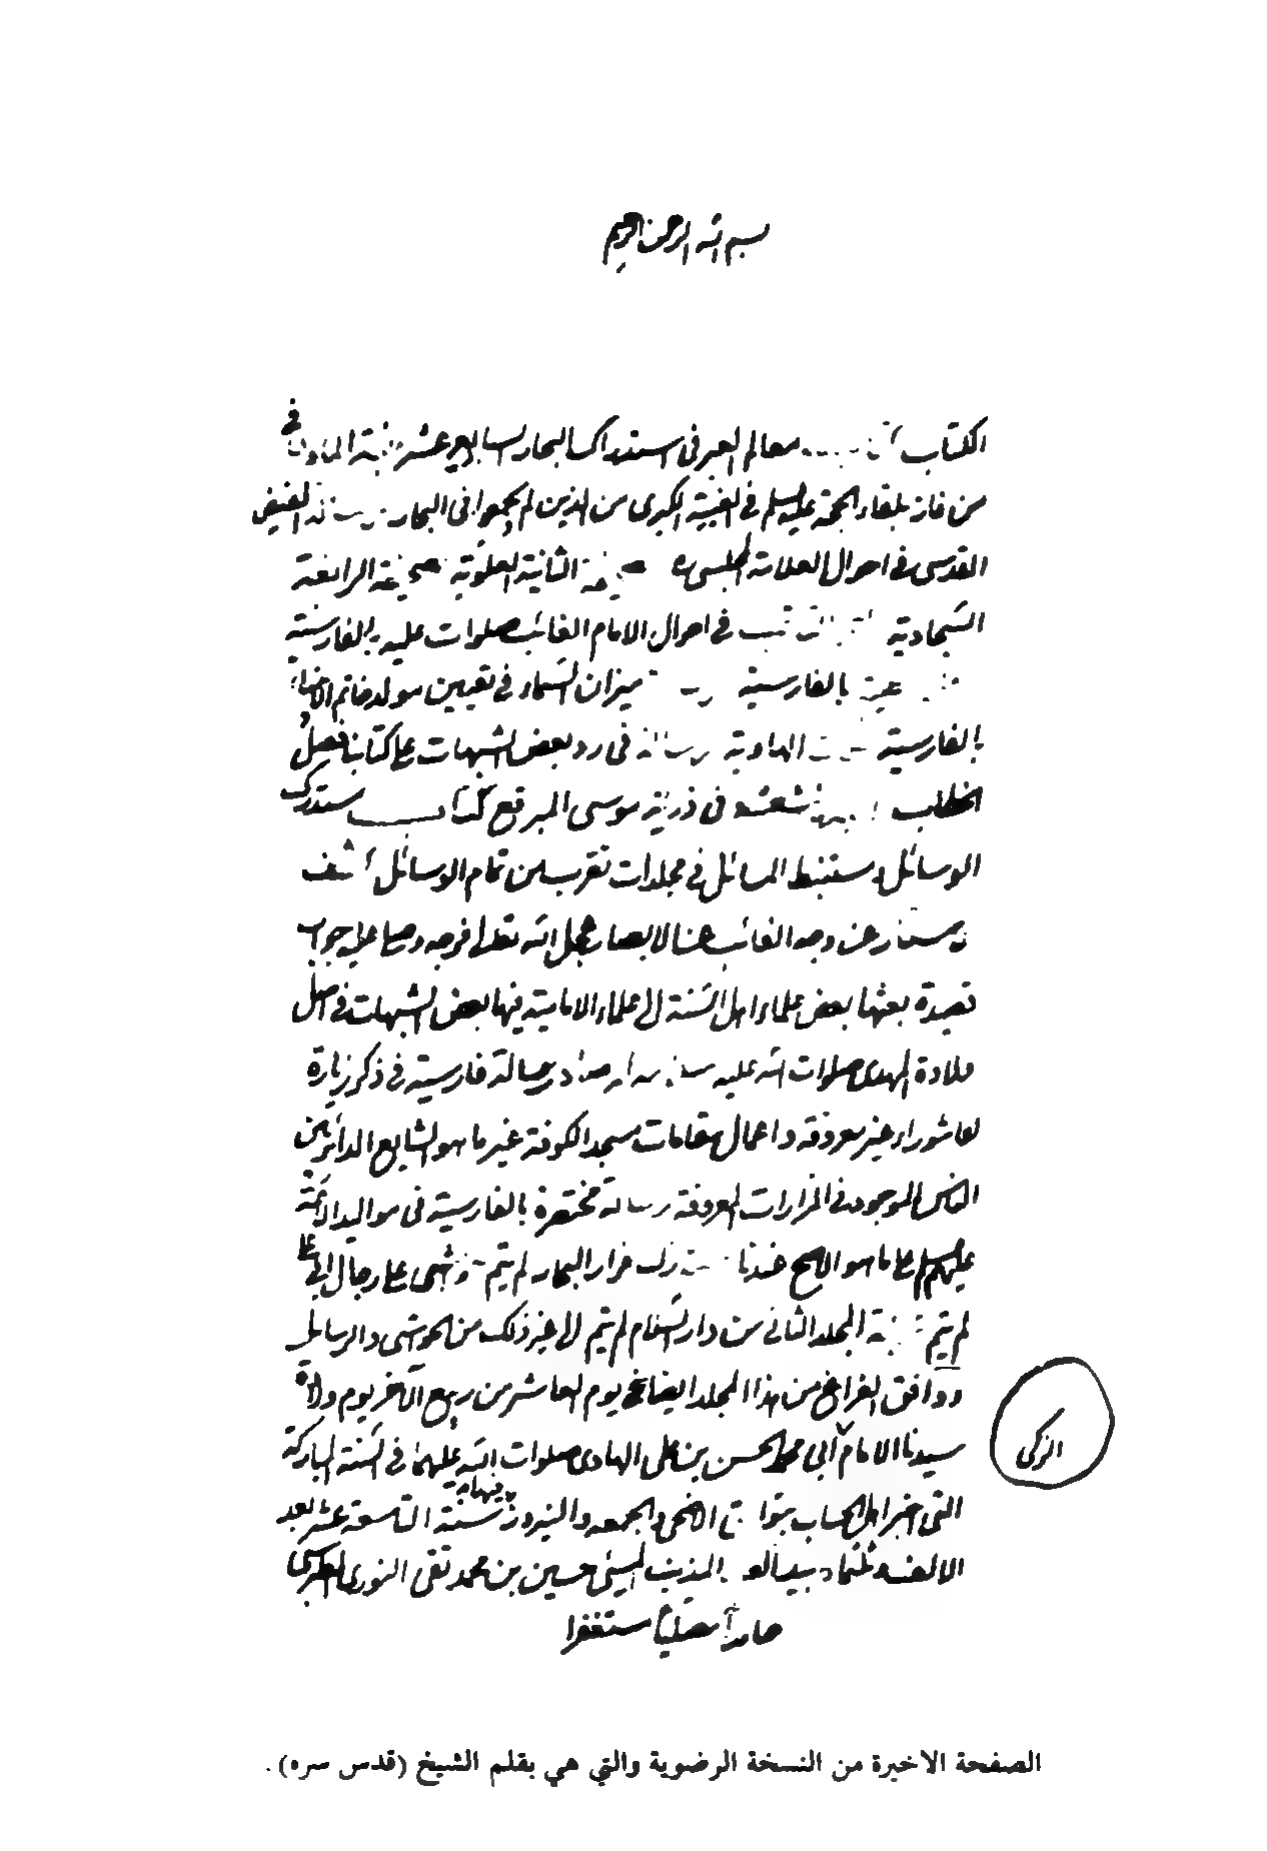 بسم الله الرحمن الرحيم
الكتاب معالم العبر في استدراك البحار السابع عشر جنة المأوى في
من فاز بلقاء الحجة عليه السلم في الغيبة الكبرى من الذين لم يجمعوا في البحار رسالة الفيض
القدسي في احوال العلامة المجلسي ره صحيفة الثانية العلوية صحيفة الرابعة
السجادية في احوال الامام الغائب صلوات عليه بالفارسية
بالفارسية ميزان السماء في تعيين مولد خاتم الانبياء
بالفارسية رسالة في رد بعض الشبهات على كتابنا فصل
الخطاب في ذرية موسى المبرقع كتاب مستدرك
الوسائل ومستنبط المسائل في مجلدات تقرب من تمام الوسائل كشف
الاستار عن وجه الغائب عن الابصار عجل الله تعالى فرجه وصلى عليه جواب
قصيدة بعثها بعض علماء اهل السنة الى علماء الامامية فيها بعض الشبهات في اصل
ولادة المهدى صلوات الله عليه رسالة فارسية في ذكر زيارة
لعاشوراء غير معروفه واعمال مقامات مسجد الكوفة غير ما هو الشايع الدائر بين
الناس الموجود في المزارات المعروفة رسالة مختصرة بالفارسية في مواليد الائمة
عليهم السلم على ما هو الاصح عندنا مستدرك مزار البحار لم يتم حواشي على رجال ابي على
لم يتم المجلد الثاني من دار السلام لم يتم الى غير ذلك من الحواشى والرسايل
ووافق الفراغ من هذا المجلد ايضا في يوم العاشر من ربيع الآخر يوم ولادة
سيدنا الامام ابي محمد الحسن بن على الهادى صلوات الله عليهما في السنة المباركة
الزكى
التى اخبر اهل الحساب بتوافق الاضحى والجمعه والنيروز فيها سنة التاسعة عشر بعد
الالف وثلثماة بيد المذنب المسيئ حسين بن محمد تقى النورى الطبرسي
حامدا مصليا مستغفرا
الصفحة الاخيرة من النسخة الرضوية والتي هي بقلم الشيخ (قدس سره) .